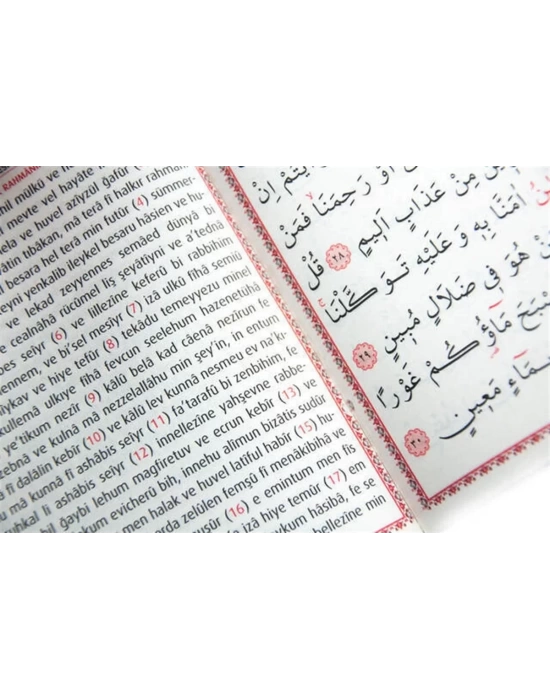 RAHMANİ
mil mülkü ve h
el mevte vel hayate
ela ve huvel azîyzül gafûr (
vâtin tıbâkan, mâ terâ fî halkır rahmâni
l besara hel terâ min futûr (4) sümmer-
teyni yenkalib ileykel besaru hâsien ve hu-
ve lekad zeyyennes semâed dünyâ bi
e cealnâhâ rücûmel liş şeyâtîyni ve a'tednâ
bes seîyr (6) ve lillezîne keferû bi rabbihim
ennem, ve bi'sel mesîyr (7) izâ ulkû fîhâ semiû
ehîykav ve hiye tefûr (8) tekâdu temeyyezu minel
küllemâ ulkıye fîhâ fevcun seelehum hazenetühâ
e'tikum nezîr (9) kâlû belâ kad câenâ nezîrun fe
ezzebnâ ve kulnâ mâ nezzelallâhu min şey'in, in entum
â fî dalâlin kebîr (10) ve kâlû lev kunnâ nesmeu ev na'kı-
u mâ kunnâ fî ashâbis seîyr (11) fa'tarafû bi zenbihim, fe
suhkal li ashâbis seîyr (12) innellezîne yahşevne rabbe-
bil ğaybi lehum mağfiretuv ve ecrun kebîr (13) ve
kum evicherû bih, innehu alîmun bizâtis sudûr
men halak ve huvel latîful habîr (15) hu-
arda zelûlen femşû fî menâkibihâ ve
nuşûr (16) e emintum men fis
e izâ hiye temûr (17) em
ykum hâsibâ, fe se
bellezîne min
اَوْ رَحِمَنَاۙ فَمَنْ
مِنْ عَذَابٍ اَلٖيمٍ ٢٨ قُلْ
اٰمَنَّا بِهٖ وَعَلَيْهِ تَوَكَّلْنَاۚ
هُوَ فٖي ضَلَالٍ مُبٖينٍ ٢٩
مَٓاؤُ۬كُمْ غَوْرًا
مَعٖينٍ ٣٠